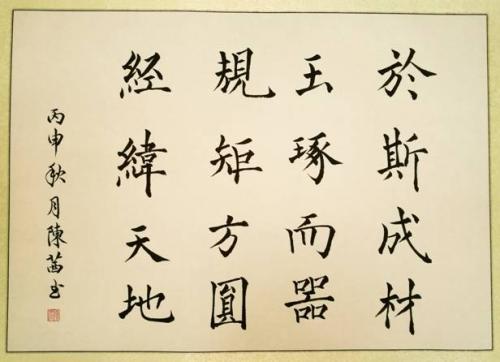 於斯成材
玉琢而器
規矩方圓
経緯天地
丙申秋月陳茜书